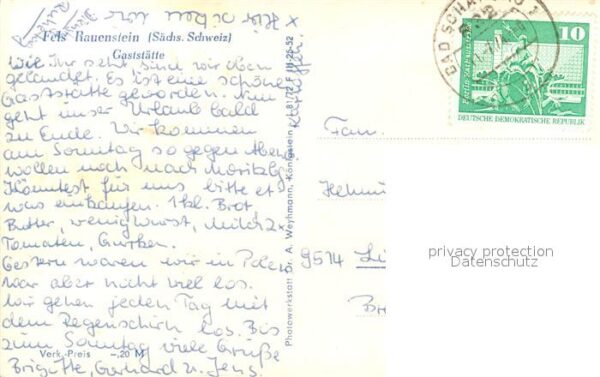 Fels Rauenstein (Sächs. Schweiz)
Gaststätte
Wie Ihr seht sind wir oben
gelandet. Es ist eine schöne
Gaststätte geworden. Nun
geht unser Urlaub bald
zu Ende. Wir kommen
am Sonntag so gegen Abend
wollen noch nach Moritzb.
Könntest für uns bitte et
was einkaufen. 1 kl. Brot
Butter, wenig Wurst, Milch 2x
Tomaten, Gurken.
Gestern waren wir in Polen
war aber nicht viel los.
Wir gehen jeden Tag mit
dem Regenschirm los. Bis
zum Sonntag viele Grüße
Brigitte, Gerhard u. Jens.
Verk.-Preis -,20 M
Photowerkstatt Dr. A. Weyhmann, Königstein
BAD SCHANDAU 1
10
DEUTSCHE DEMOKRATISCHE REPUBLIK
Fam.
Helmut
9514
privacy protection
Datenschutz